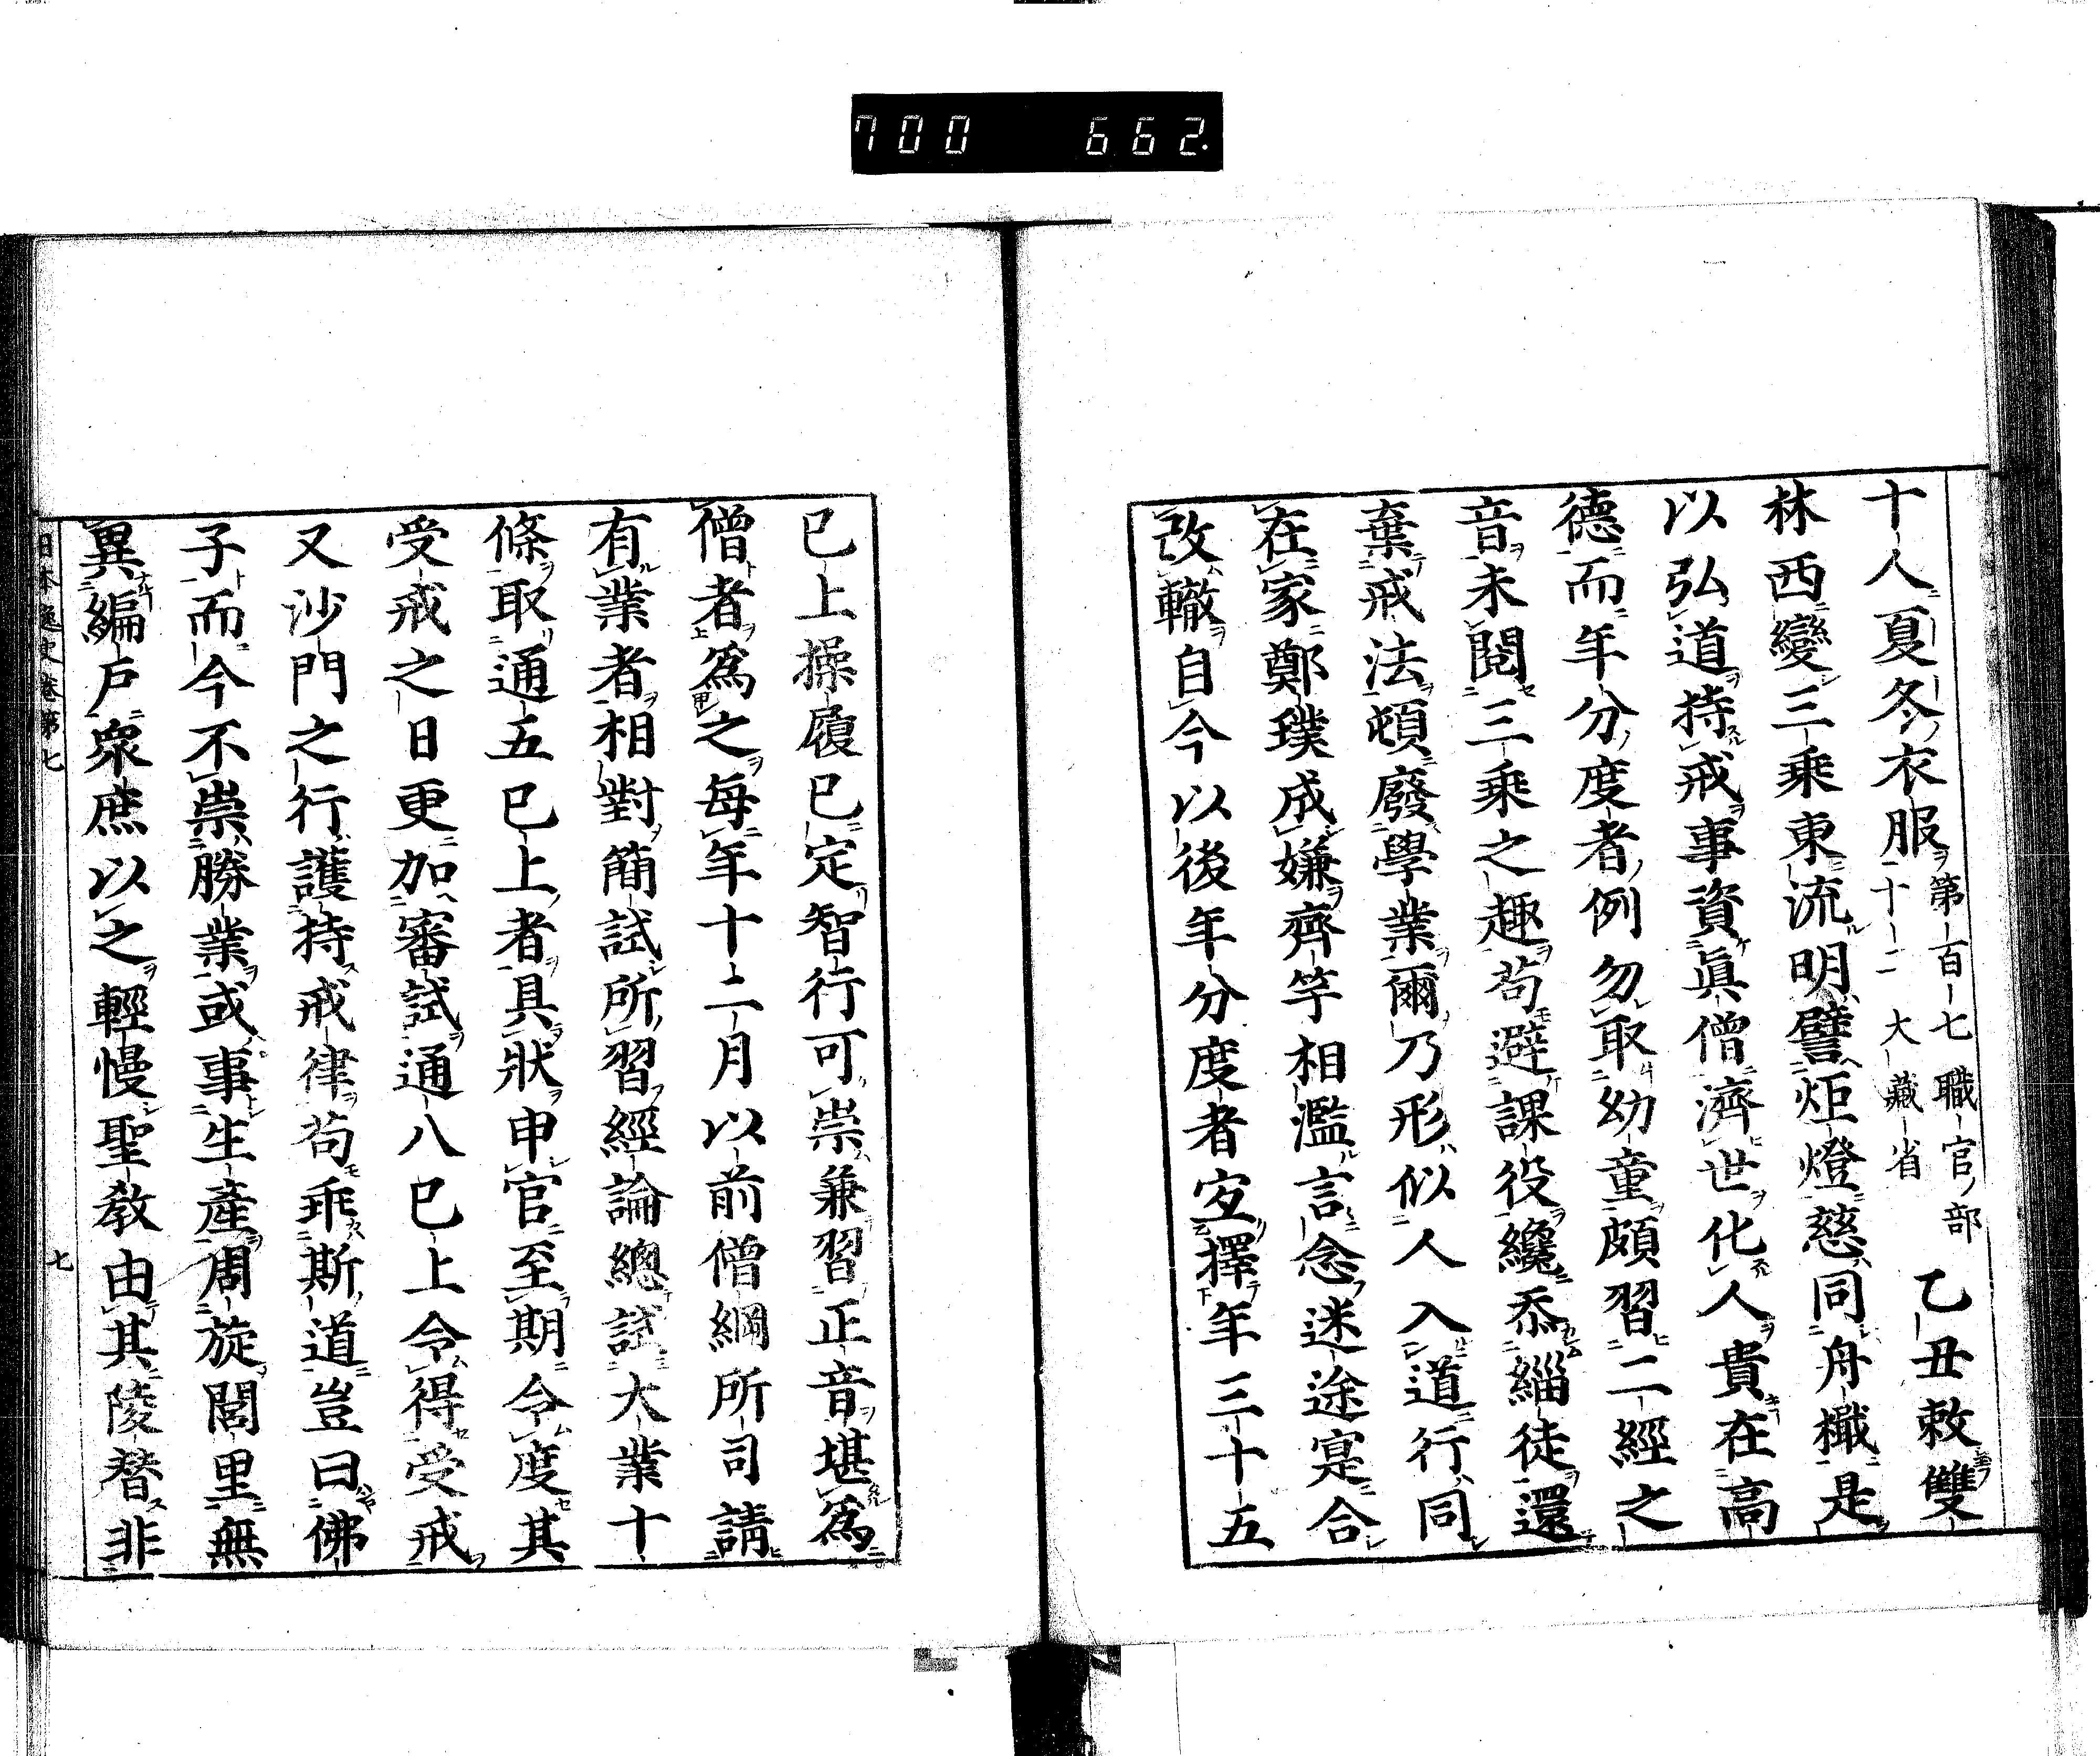 700 662
十人夏冬衣服第百七職官部
二十二大藏省
乙丑敕雙
林西變三乘東流明譬炬燈慈同舟檝是
以弘道持戒事資眞僧濟世化人貴在高
德而年分度者例勿取幼童頗習二經之
音未閱三乘之趣苟避課役纔忝緇徒還
棄戒法頓廢學業爾乃形似人入道行同
在家鄭璞成嫌齊竽相濫言念迷途寔合
改轍自今以後年分度者宜擇年三十五
已上操履已定智行可崇兼習正音堪爲
僧者爲之每年十二月以前僧綱所司請
有業者相對簡試所習經論總試大業十
條取通五已上者具狀申官至期令度其
受戒之日更加審試通八已上令得受戒
又沙門之行護持戒律苟乖斯道豈曰佛
子而今不崇勝業或事生產周旋閭里無
異編戶衆庶以之輕慢聖敎由其陵替非
日本逸史卷第七
七